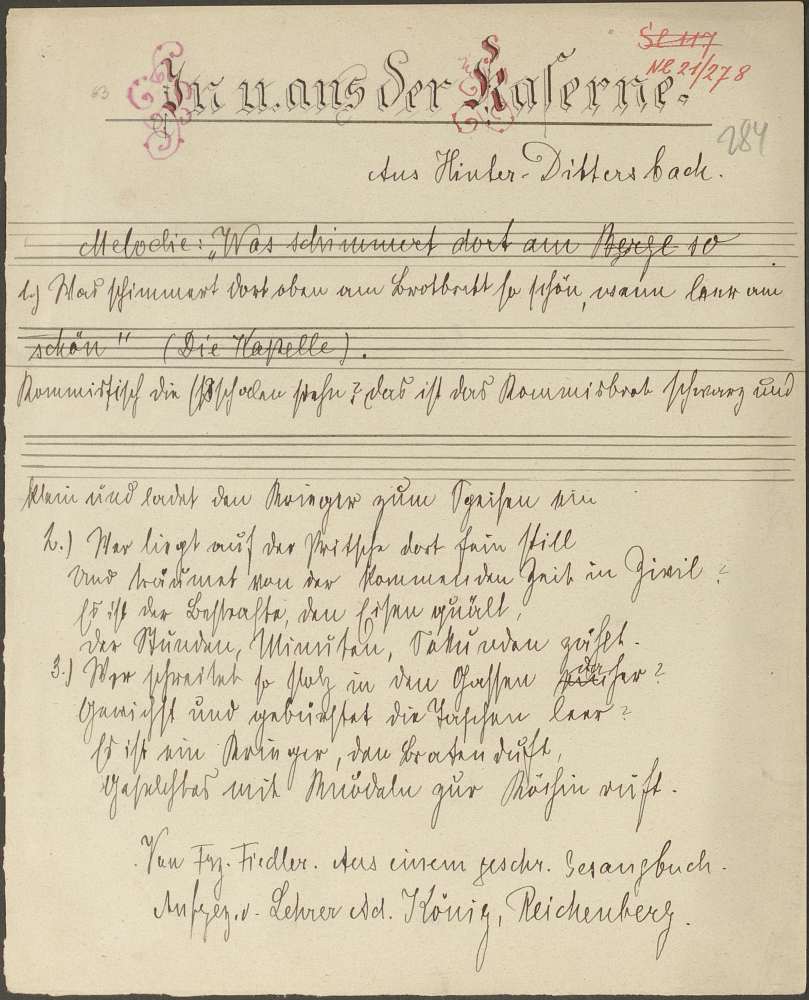 Sl 117
NL 21/278
63
In u. aus der Kaserne.
284
Aus Hinter-Dittersbach.
Melodie: "Was schimmert dort am Berge so
1.) Was schimmert dort oben am Brotbrett so schön, wenn leer am
schön" (Die Kapelle).
Kommistisch die Eßschalen stehn? das ist das Kommisbrot schwarz und
klein und ladet den Krieger zum Speisen ein
2.) Wer liegt auf der Pritsche dort fein still
Und träumet von der kommenden Zeit in Zivil?
Es ist der Bestrafte, den Eisen quält,
Der Stunden, Minuten, Sekunden zählt.
3.) Wer schreitet so stolz in den Gassen daher?
Gewichst und gebürstet die Taschen leer?
Es ist ein Krieger, den Bratenduft,
Geselchtes mit Knödeln zur Köchin ruft.
Von Frz. Fiedler. Aus einem geschr. Gesangbuch.
Aufgez. v. Lehrer Ad. König, Reichenberg.